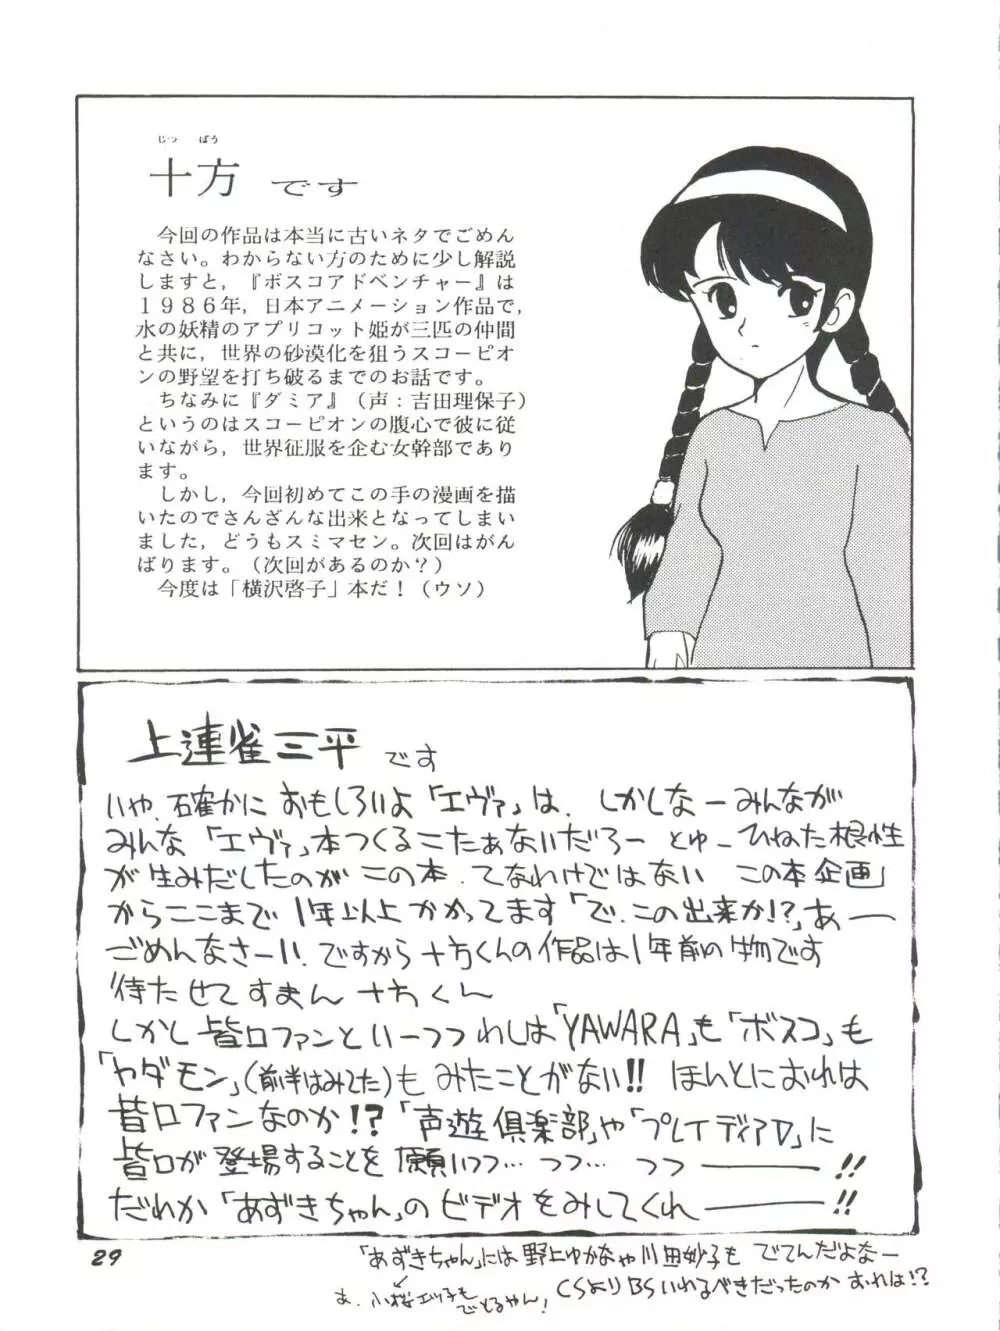 じっ ぽう
十方 です
今回の作品は本当に古いネタでごめん
なさい。わからない方のために少し解説
しますと,『ボスコアドベンチャー』は
1986年,日本アニメーション作品で,
水の妖精のアプリコット姫が三匹の仲間
と共に,世界の砂漠化を狙うスコーピオ
ンの野望を打ち破るまでのお話です。
ちなみに『ダミア』(声:吉田理保子)
というのはスコーピオンの腹心で彼に従
いながら,世界征服を企む女幹部であり
ます。
しかし,今回初めてこの手の漫画を描
いたのでさんざんな出来となってしまい
ました,どうもスミマセン。次回はがん
ばります。(次回があるのか?)
今度は「横沢啓子」本だ!(ウソ)
上連雀三平 です
いや、確かに おもしろいよ「エヴァ」は、しかしなーみんなが
みんな「エヴァ」本つくるこたぁないだろー とゅーひねた根性
が生みだしたのが この本、てなわけではない この本企画
からここまで 1年以上かかってます「で、この出来か!?」あー
ごめんなさーい、ですから十方くんの作品は1年前の物です
待たせてすまん 十方くん
しかし皆口ファンといーつつ わしは「YAWARA」も「ボスコ」も
「ヤダモン」(前半はみてた)も みたことがない!! ほんとにおれは
皆口ファンなのか!?「声遊倶楽部」や「プレイディアD」に
皆口が登場することを願いつつ… つつ… つつ――!!
だれか「あずきちゃん」のビデオをみしてくれ――!!
29
「あずきちゃん」には野上ゆかなや川田妙子も でてんだよなー
CSよりBSいれるべきだったのか おれは!?
あ、小桜エツ子も
でとるやん!